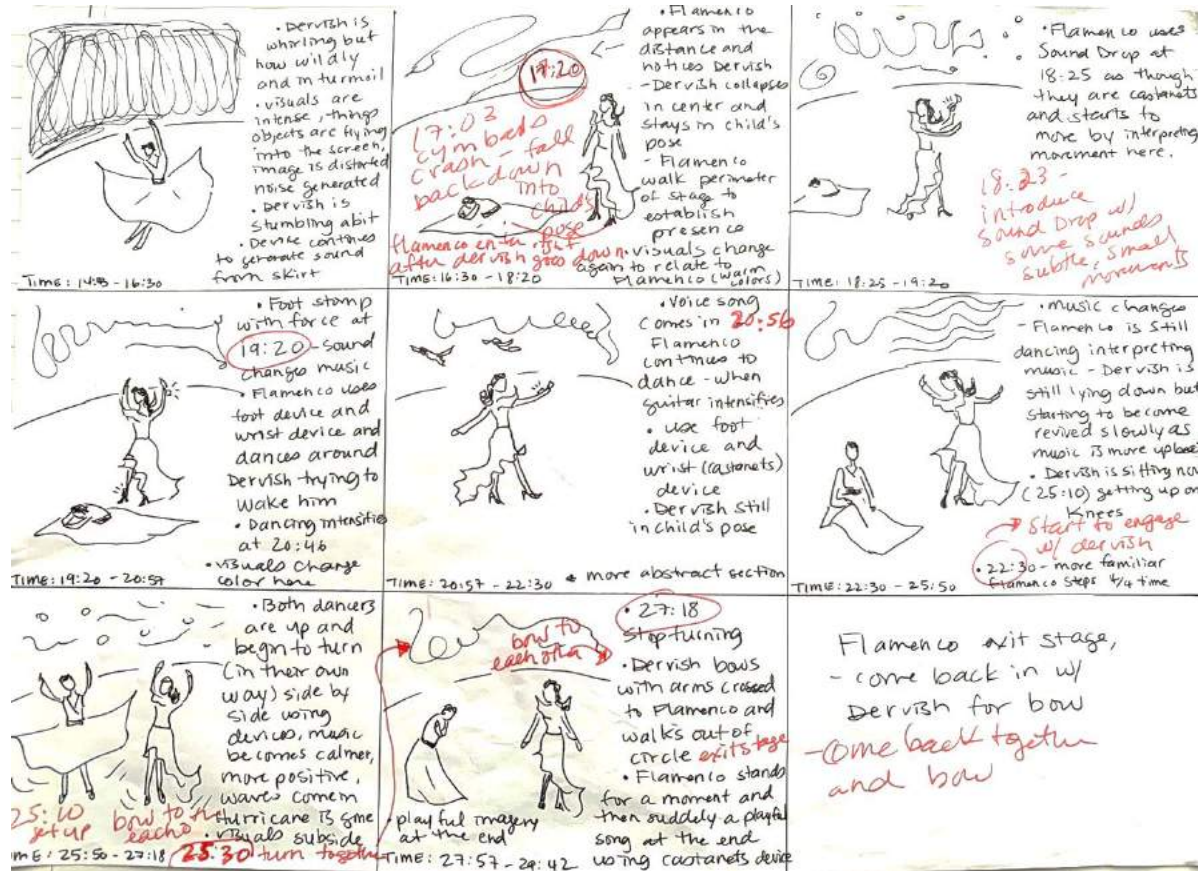 • Dervish is
whirling but
now wildly
and in turmoil
• visuals are
intense, things
objects are flying
into the screen,
image is distorted
noise generated
• Dervish is
stumbling abit
• Device continues
to generate sound
from skirt
- 16:30
• Flamenco
appears in the
distance and
notices Dervish
- Dervish collapses
in center and
stays in child's
pose
- Flamenco
walk perimeter
of stage to
establish
presence
• visuals change
again to relate to
Flamenco (warm
colors)
17:20
17:03
cymbals
crash - fall
back down
into
childs
pose
flamenco enter right
after dervish goes down
TIME: 16:30 - 18:20
• Flamenco uses
Sound Drop at
18:25 as though
they are castanets
and starts to
move by interpreting
movement here.
18:23 -
introduce
Sound Drop w/
some sounds
subtle, small
movements
TIME: 18:25 - 19:20
• Foot stomp
with force at
19:20 - sound
changes music
• Flamenco uses
foot device and
wrist device and
dances around
Dervish trying to
wake him
• Dancing intensifies
at 20:46
• visuals change
color here
TIME: 19:20 - 20:57
• Voice song
comes in 20:56
Flamenco
continues to
dance - when
guitar intensifies
• use foot
device and
wrist (castanets)
device
• Dervish still
in child's pose
TIME: 20:57 - 22:30
more abstract section
• music changes
- Flamenco is still
dancing interpreting
music - Dervish is
still lying down but
starting to become
revived slowly as
music is more upbeat
• Dervish is sitting now
(25:10) getting up on
knees
Start to engage
w/ dervish
• 22:30 - more familiar
flamenco steps 4/4 time
TIME: 22:30 - 25:50
• Both dancers
are up and
begin to turn
(in their own
way) side by
side using
devices, music
becomes calmer,
more positive,
waves come in
Hurricane is gone
• visuals subside
25:10
get up
bow to
each
25:30 turn together
TIME: 25:50 - 27:18
• 27:18
Stop turning
• Dervish bows
with arms crossed
to Flamenco and
walks out of
circle exit stage
• Flamenco stands
for a moment and
then suddely a playful
song at the end
using castanets device
bow to
each other
• playful imagery
at the end
TIME: 27:57 - 29:42
Flamenco exit stage,
- come back in w/
Dervish for bow
- Come back together
and bow